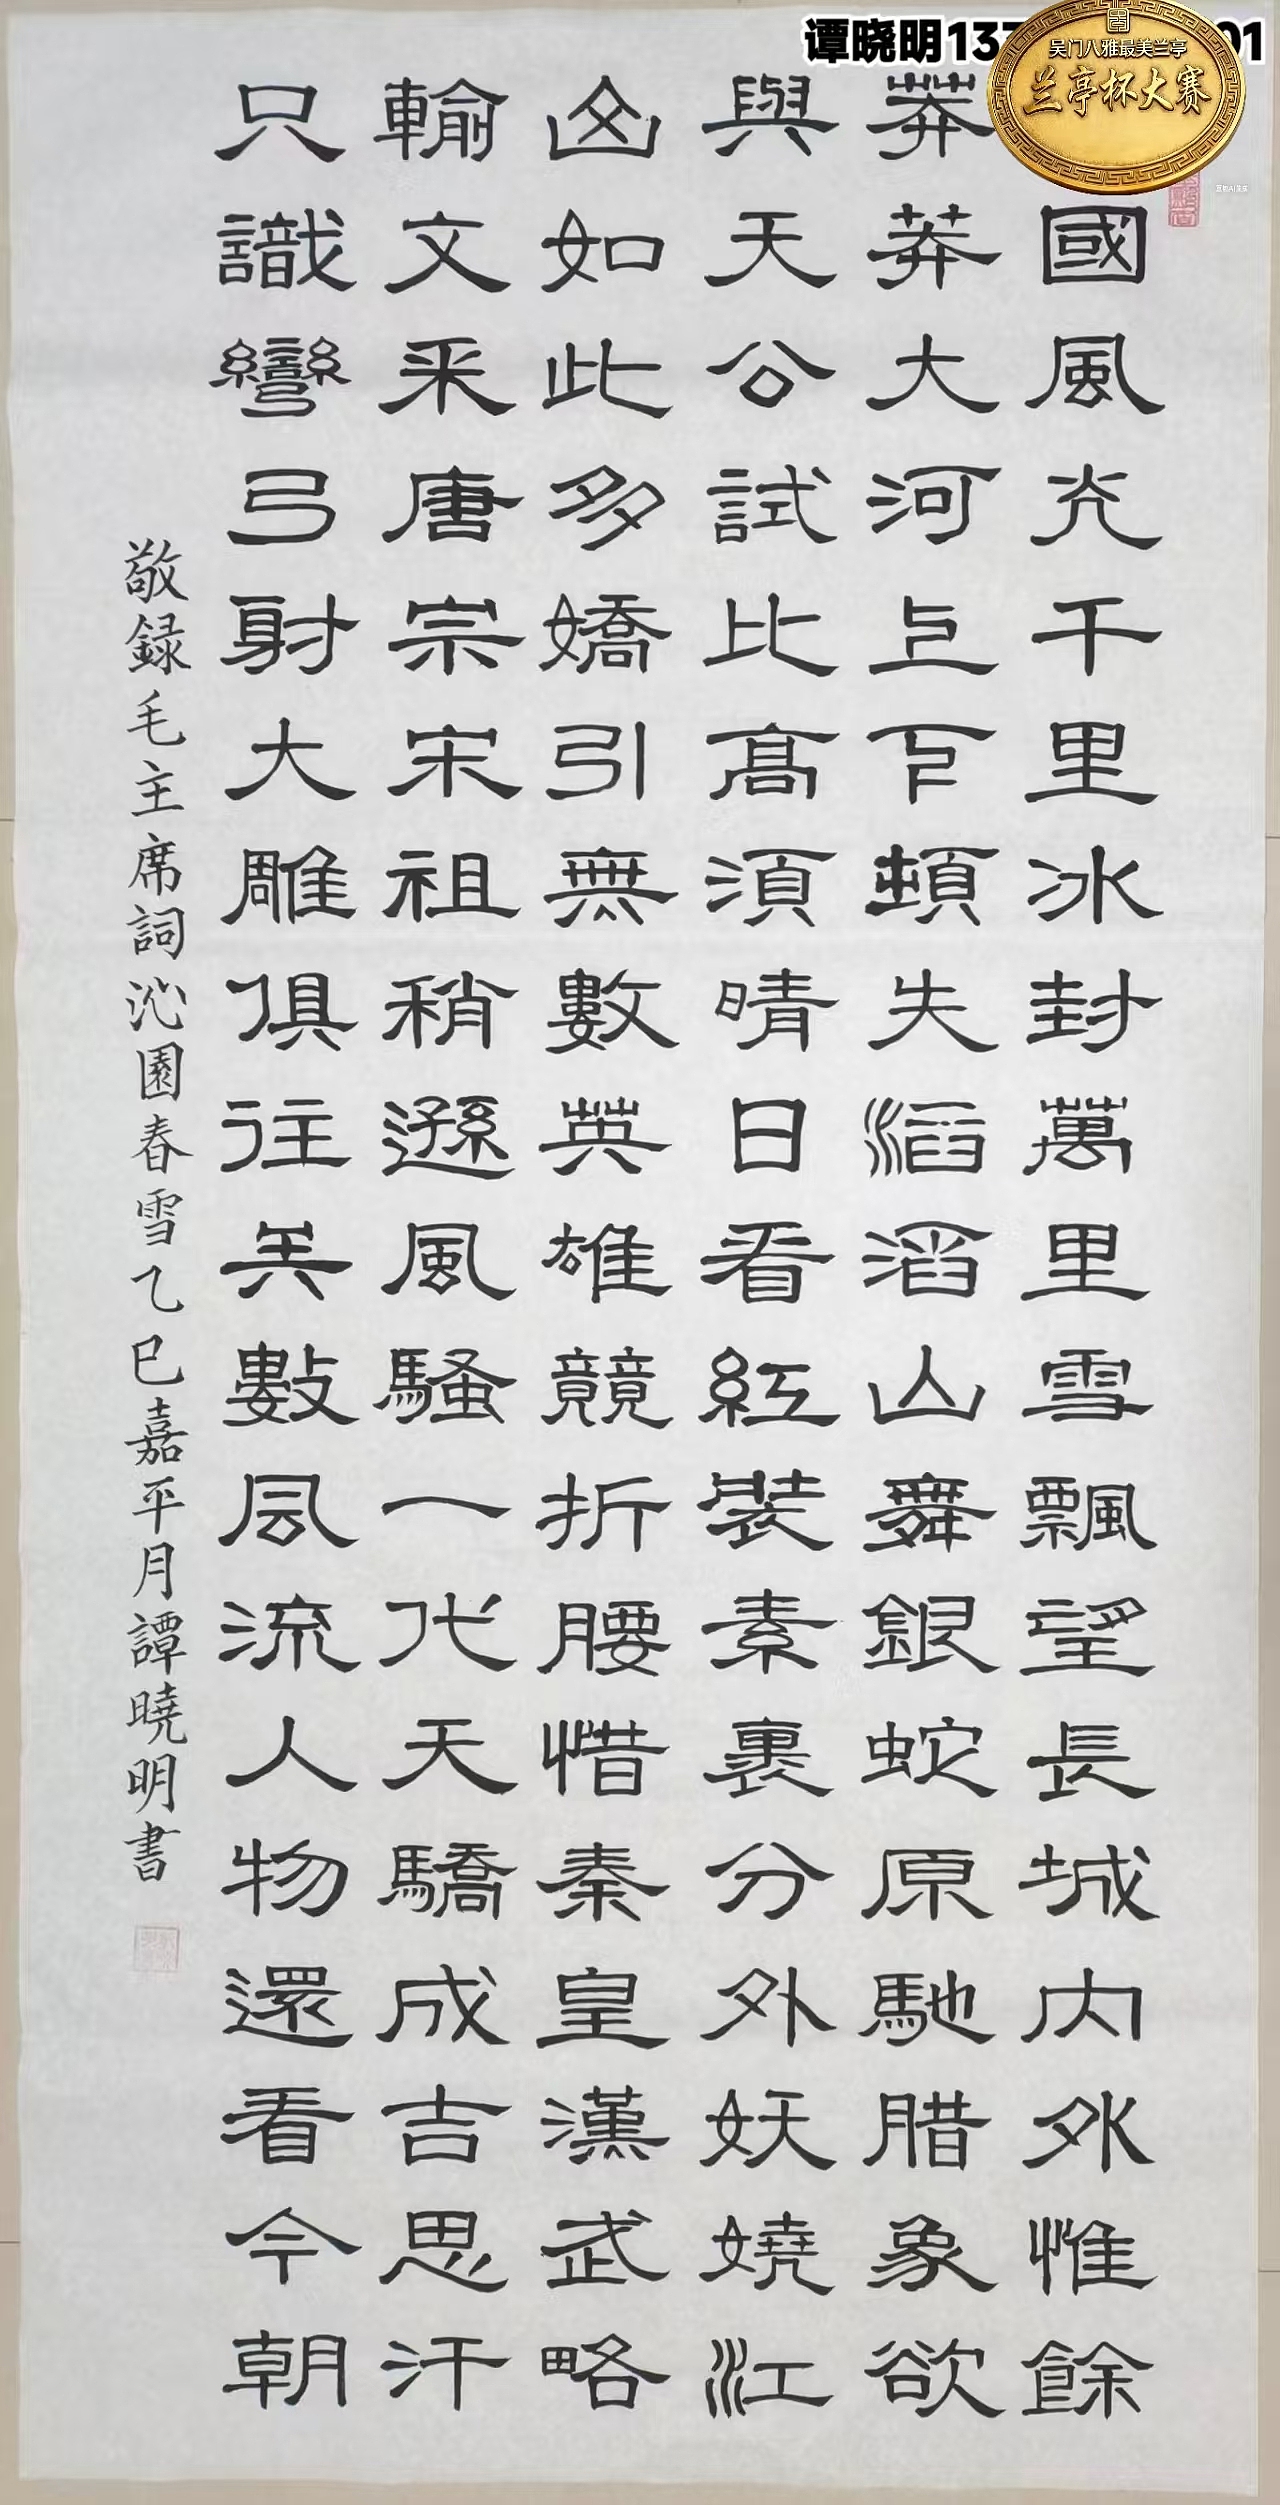 谭晓明13 01
吴门八雅最美兰亭
兰亭杯大赛
國風光千里冰封萬里雪飄望長城内外惟餘
莽莽大河上下頓失滔滔山舞銀蛇原馳腊象欲
與天公試比高須晴日看紅裝素裹分外妖嬈江
山如此多嬌引無數英雄競折腰惜秦皇漢武略
輸文采唐宗宋祖稍遜風騷一代天驕成吉思汗
只識彎弓射大雕俱往矣數風流人物還看今朝
敬録毛主席詞沁園春雪乙巳嘉平月譚曉明書